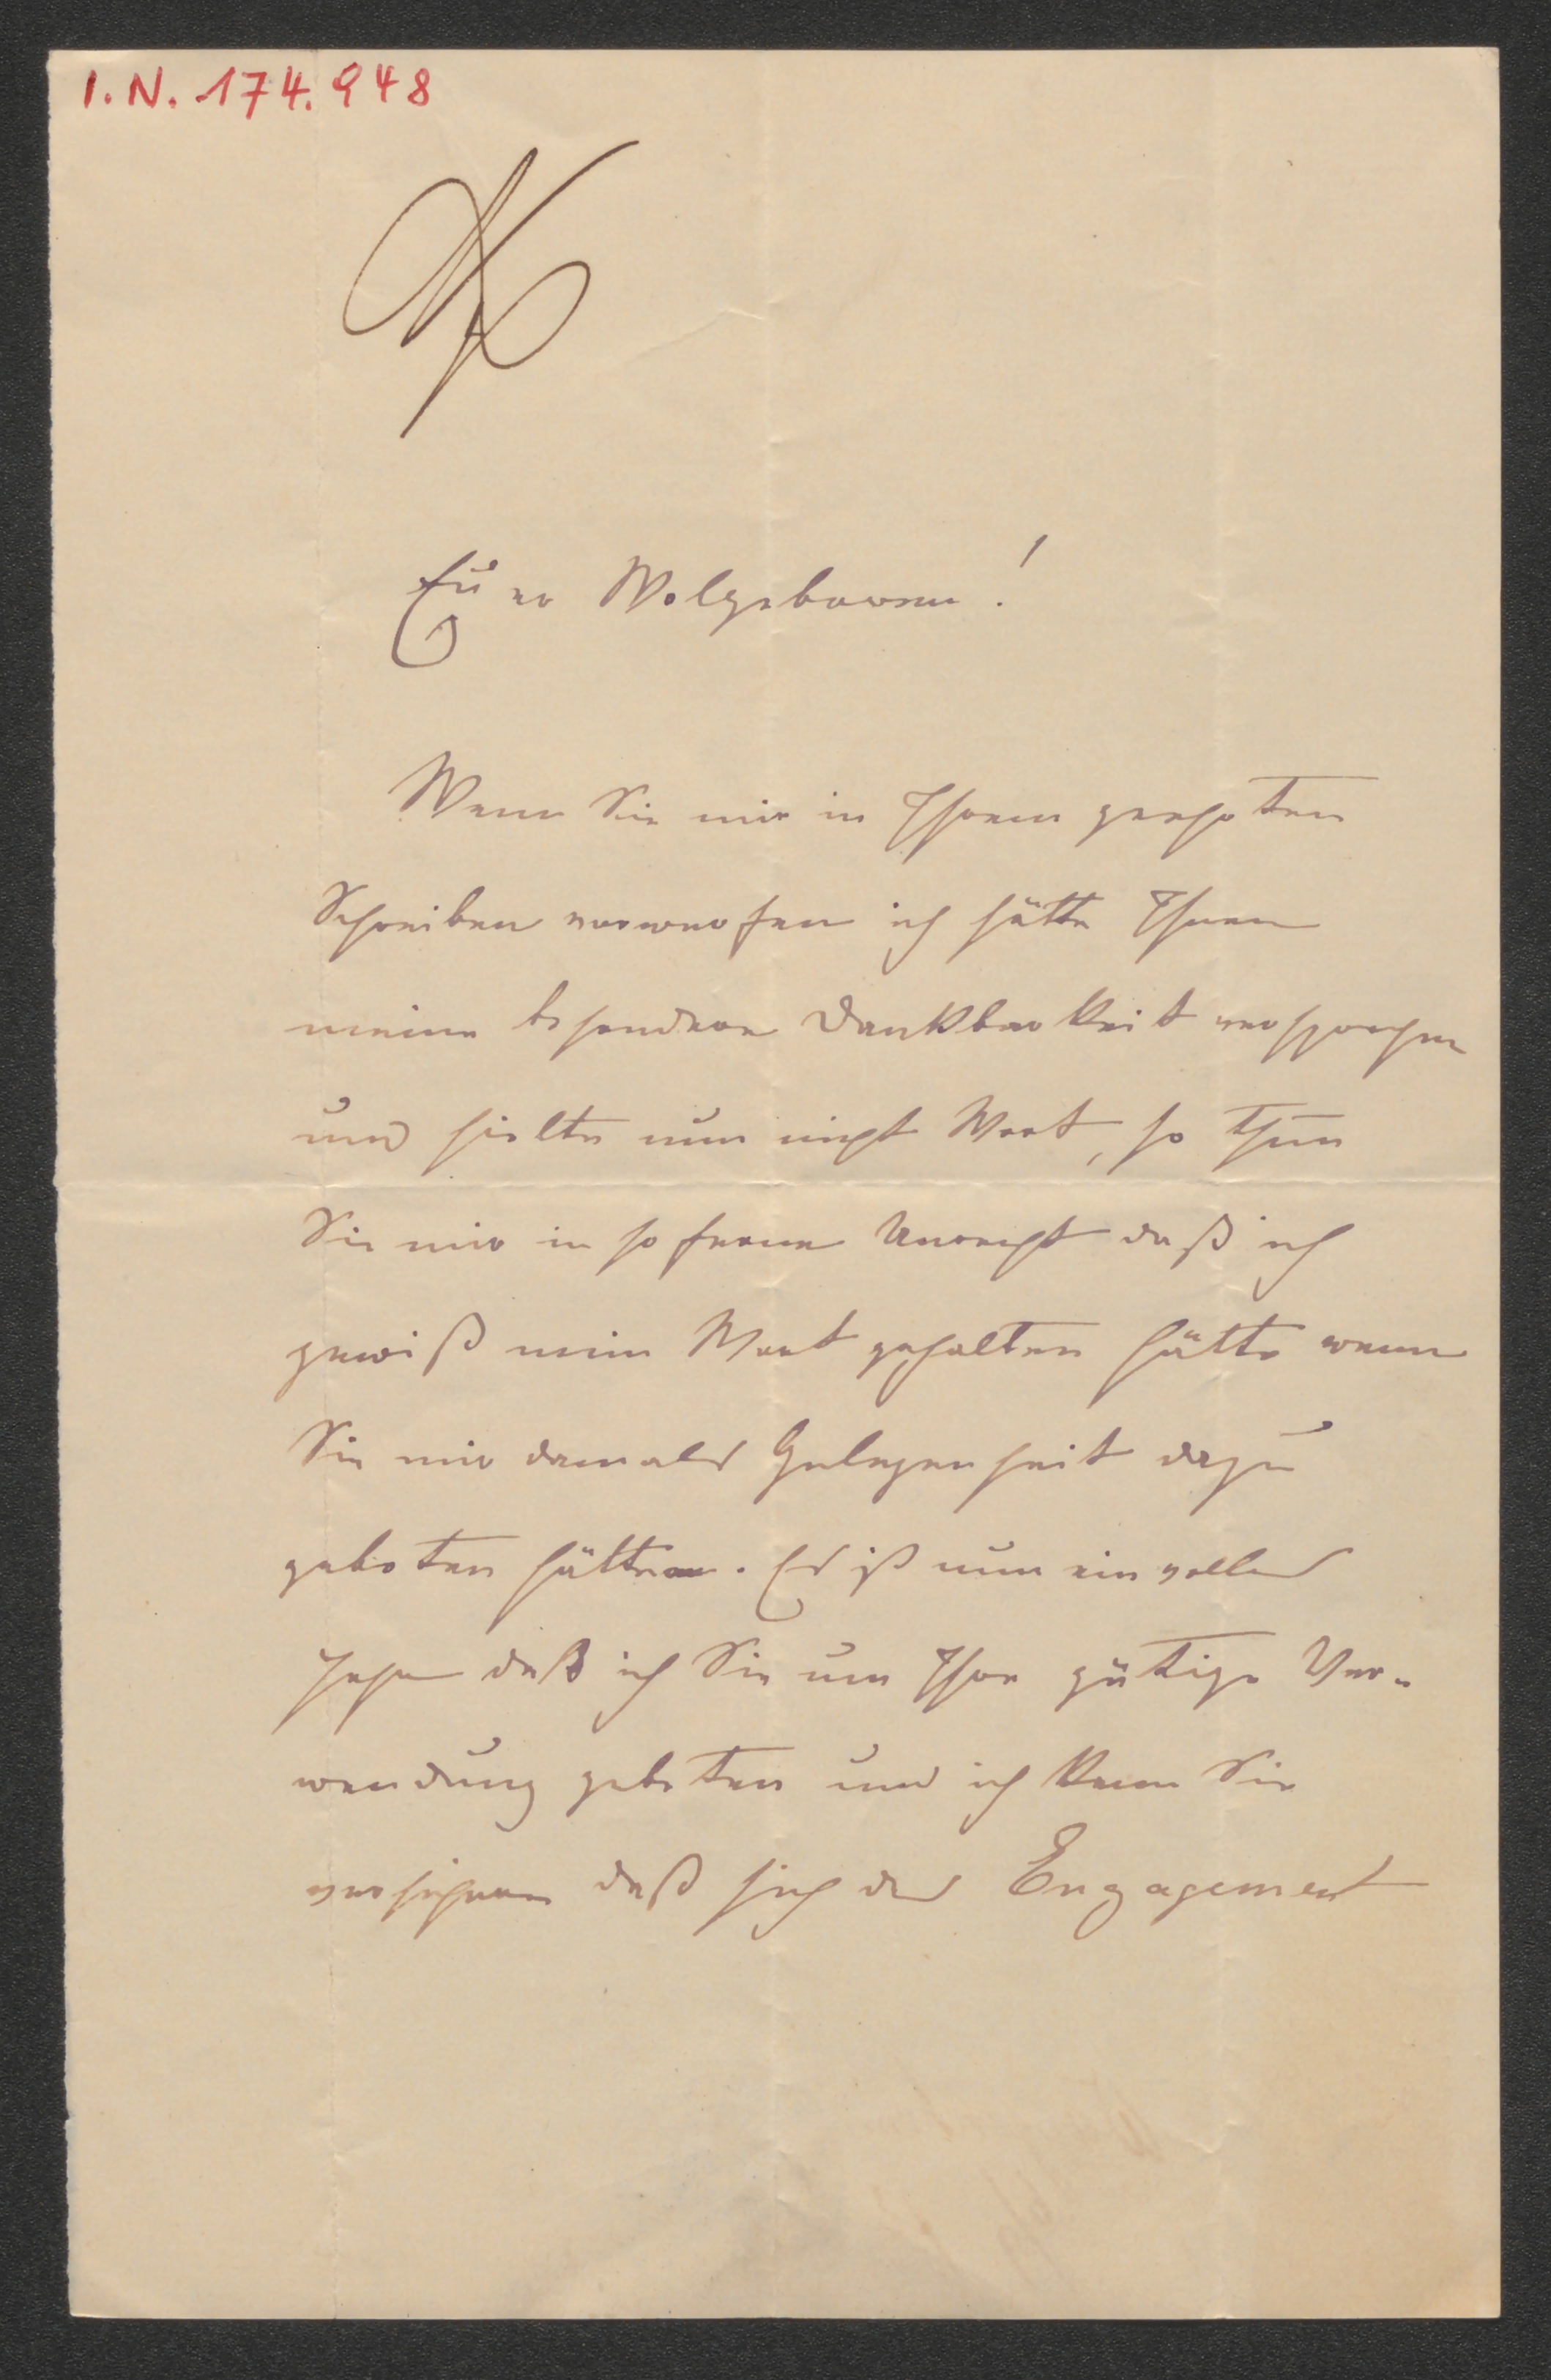 I.N. 174.948
Euer Wolgeboren!
Wenn Sie mir in Ihrem geehrten
Schreiben vorwerfen ich hätte Ihnen
meine besondere Dankbarkeit versprochen
und hielte nun nicht Wort, so thun
Sie mir in so ferne Unrecht daß ich
gewiß mein Wort gehalten hätte wenn
Sie mir damals Gelegenheit dazu
geboten hätten. Es ist nun ein volles
Jahr daß ich Sie um Ihre gütige Ver-
wendung gebeten und ich kann Sie
versichern daß sich das Engagement